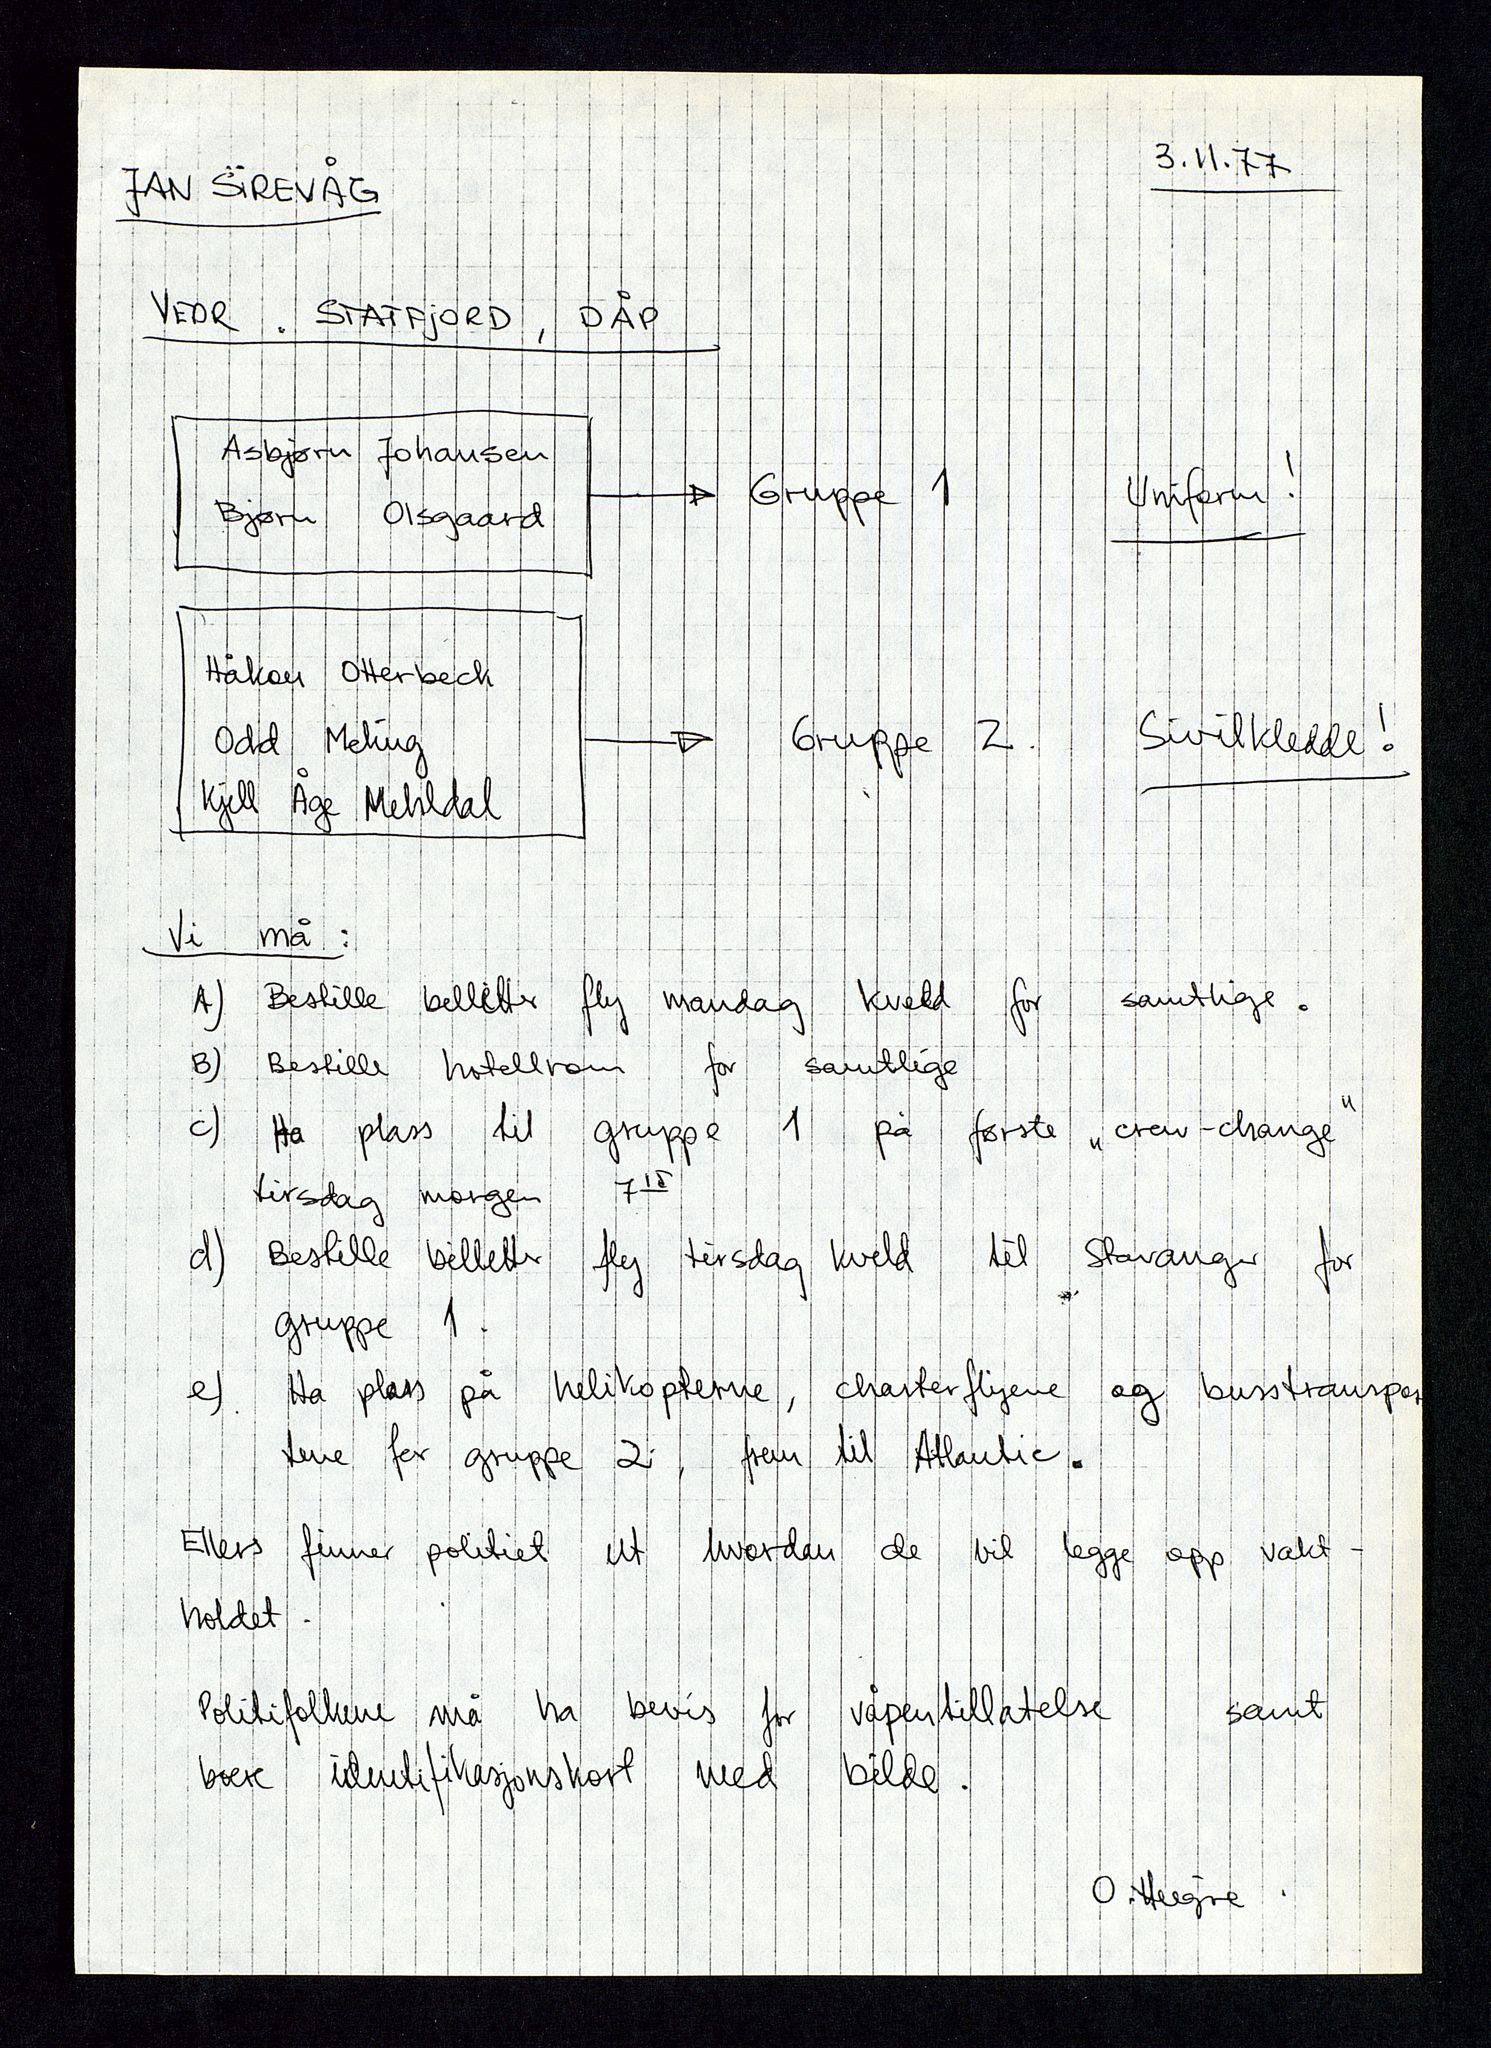 JAN SIREVÅG
3.11.77
VEDR. STATFJORD, DÅP
Asbjørn Johansen
Bjørn Olsgaard
Gruppe 1
Uniform!
Håkon Otterbeck
Odd Meling
Kjell Åge Mehldal
Gruppe 2.
Sivilkledde!
Vi må:
A) Bestille billetter fly mandag kveld for samtlige.
B) Bestille hotellrom for samtlige
c) Ha plass til gruppe 1 på første „crew-change"
tirsdag morgen 7 15
d) Bestille billetter fly tirsdag kveld til Stavanger for
gruppe 1.
e) Ha plass på helikopterne, charterflyene og busstranspor
tene for gruppe 2, frem til Atlantic.
Ellers finner politiet ut hvordan de vil legge opp vakt-
holdet.
Politifolkene må ha bevis for våpentillatelse samt
bære identifikasjonskort med bilde.